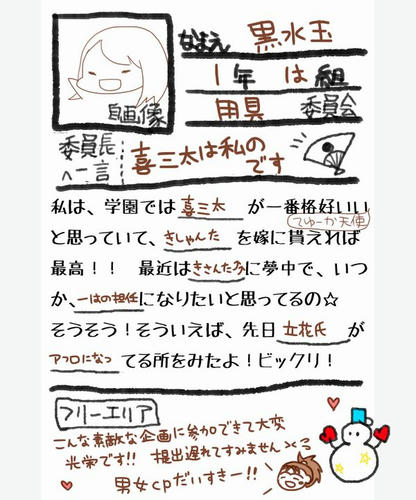 なまえ 黒水玉
1年 は 組
用具 委員会
自画像
委員長へ一言 喜三太は私のです
私は、学園では 喜三太 が一番格好いい
てゆーか天使
と思っていて、きしゃんた を嫁に貰えれば
最高!! 最近は きさんたろ に夢中で、いつ
か、一はの担任 になりたいと思ってるの☆
そうそう!そういえば、先日 立花氏 が
アフロになっ てる所をみたよ!ビックリ!
フリーエリア
こんな素敵な企画に参加できて大変
光栄です!! 提出遅れてすみません
男女cpだいすきー!!